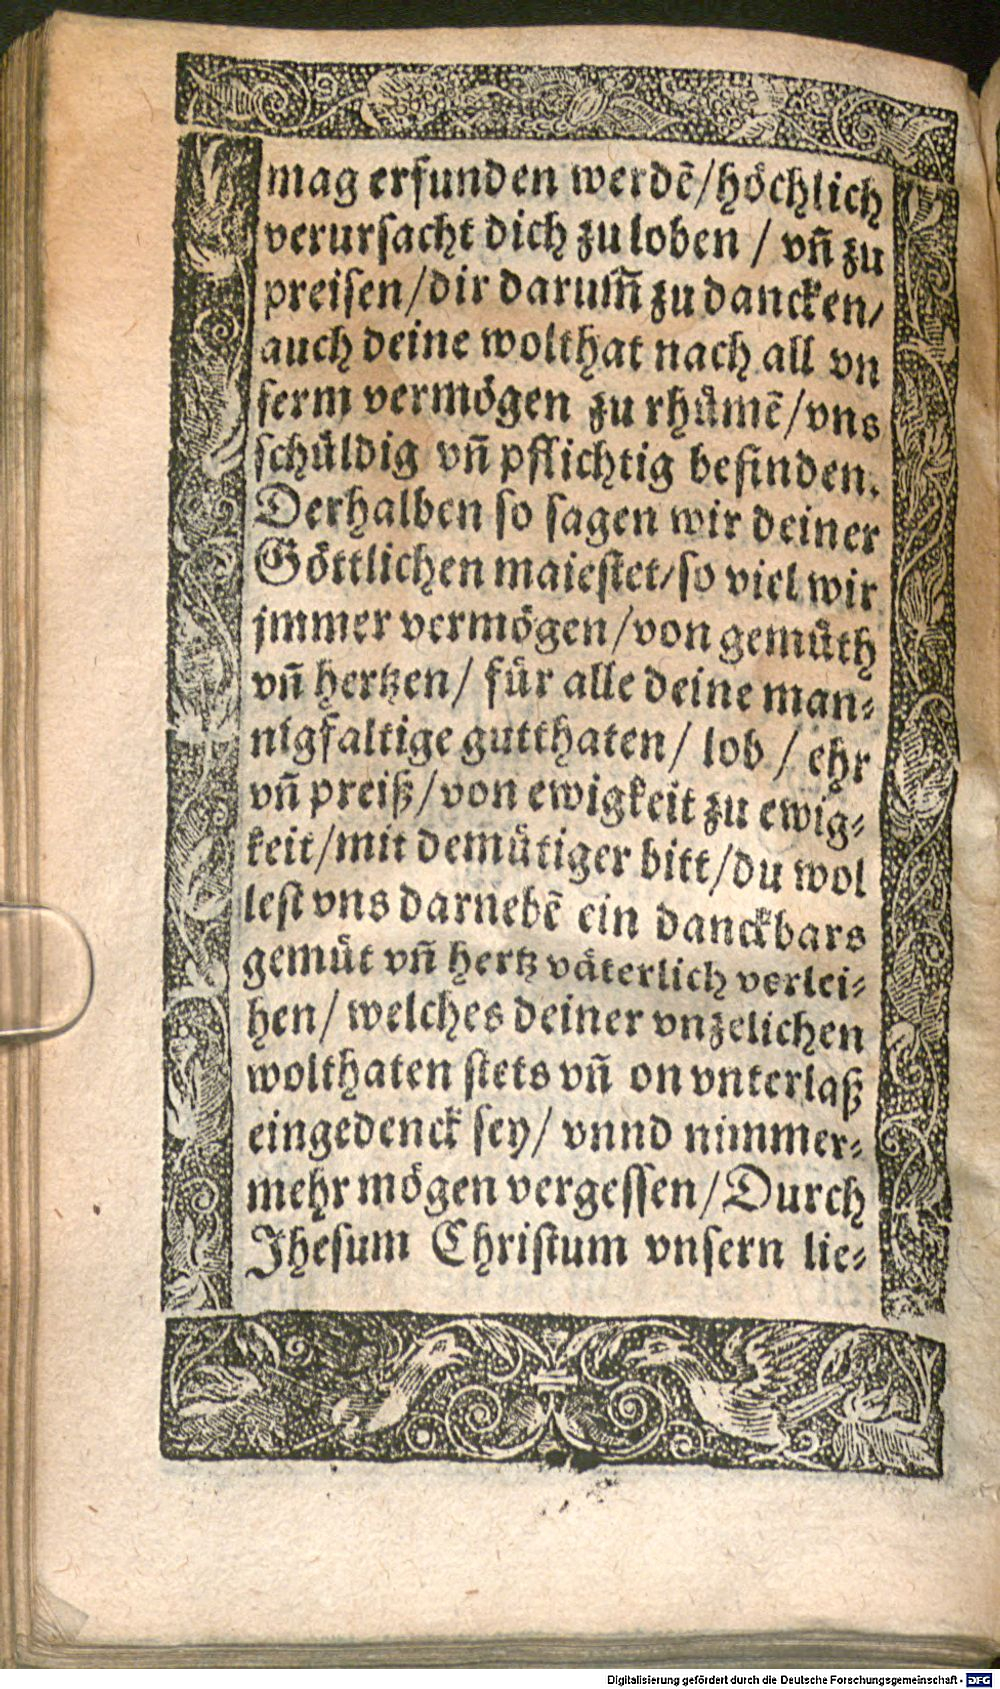 mag erfunden werdẽ/höchlich
verursacht dich zu loben / vñ zu
preisen/dir darum̃ zu dancken/
auch deine wolthat nach all vn
serm vermögen zu rhůmẽ/vns
schüldig vñ pflichtig befinden.
Derhalben so sagen wir deiner
Göttlichen maiestet/so viel wir
jmmer vermögen/von gemůth
vñ hertzen/ für alle deine man⸗
nigfaltige gutthaten/ lob / ehr
vñ preiß/von ewigkeit zu ewig⸗
keit/mit demütiger bitt/du wol
lest vns darnebẽ ein danckbars
gemüt vñ hertz väterlich verlei⸗
hen/ welches deiner vnzelichen
wolthaten stets vñ on vnterlaß
eingedenck sey/ vnnd nimmer⸗
mehr mögen vergessen/Durch
Jhesum Christum vnsern lie⸗
Digitalisierung gefördert durch die Deutsche Forschungsgemeinschaft - DFG